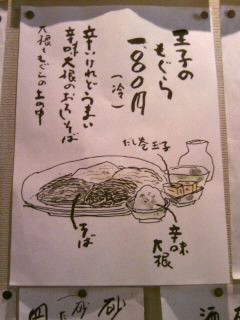 王子の
もぐら
八〇〇円
(冷)
辛いけれどうまい
辛味大根のおろしそば
大根ともぐらの土の中
だし巻玉子
そば
辛味
大根
砂
酒